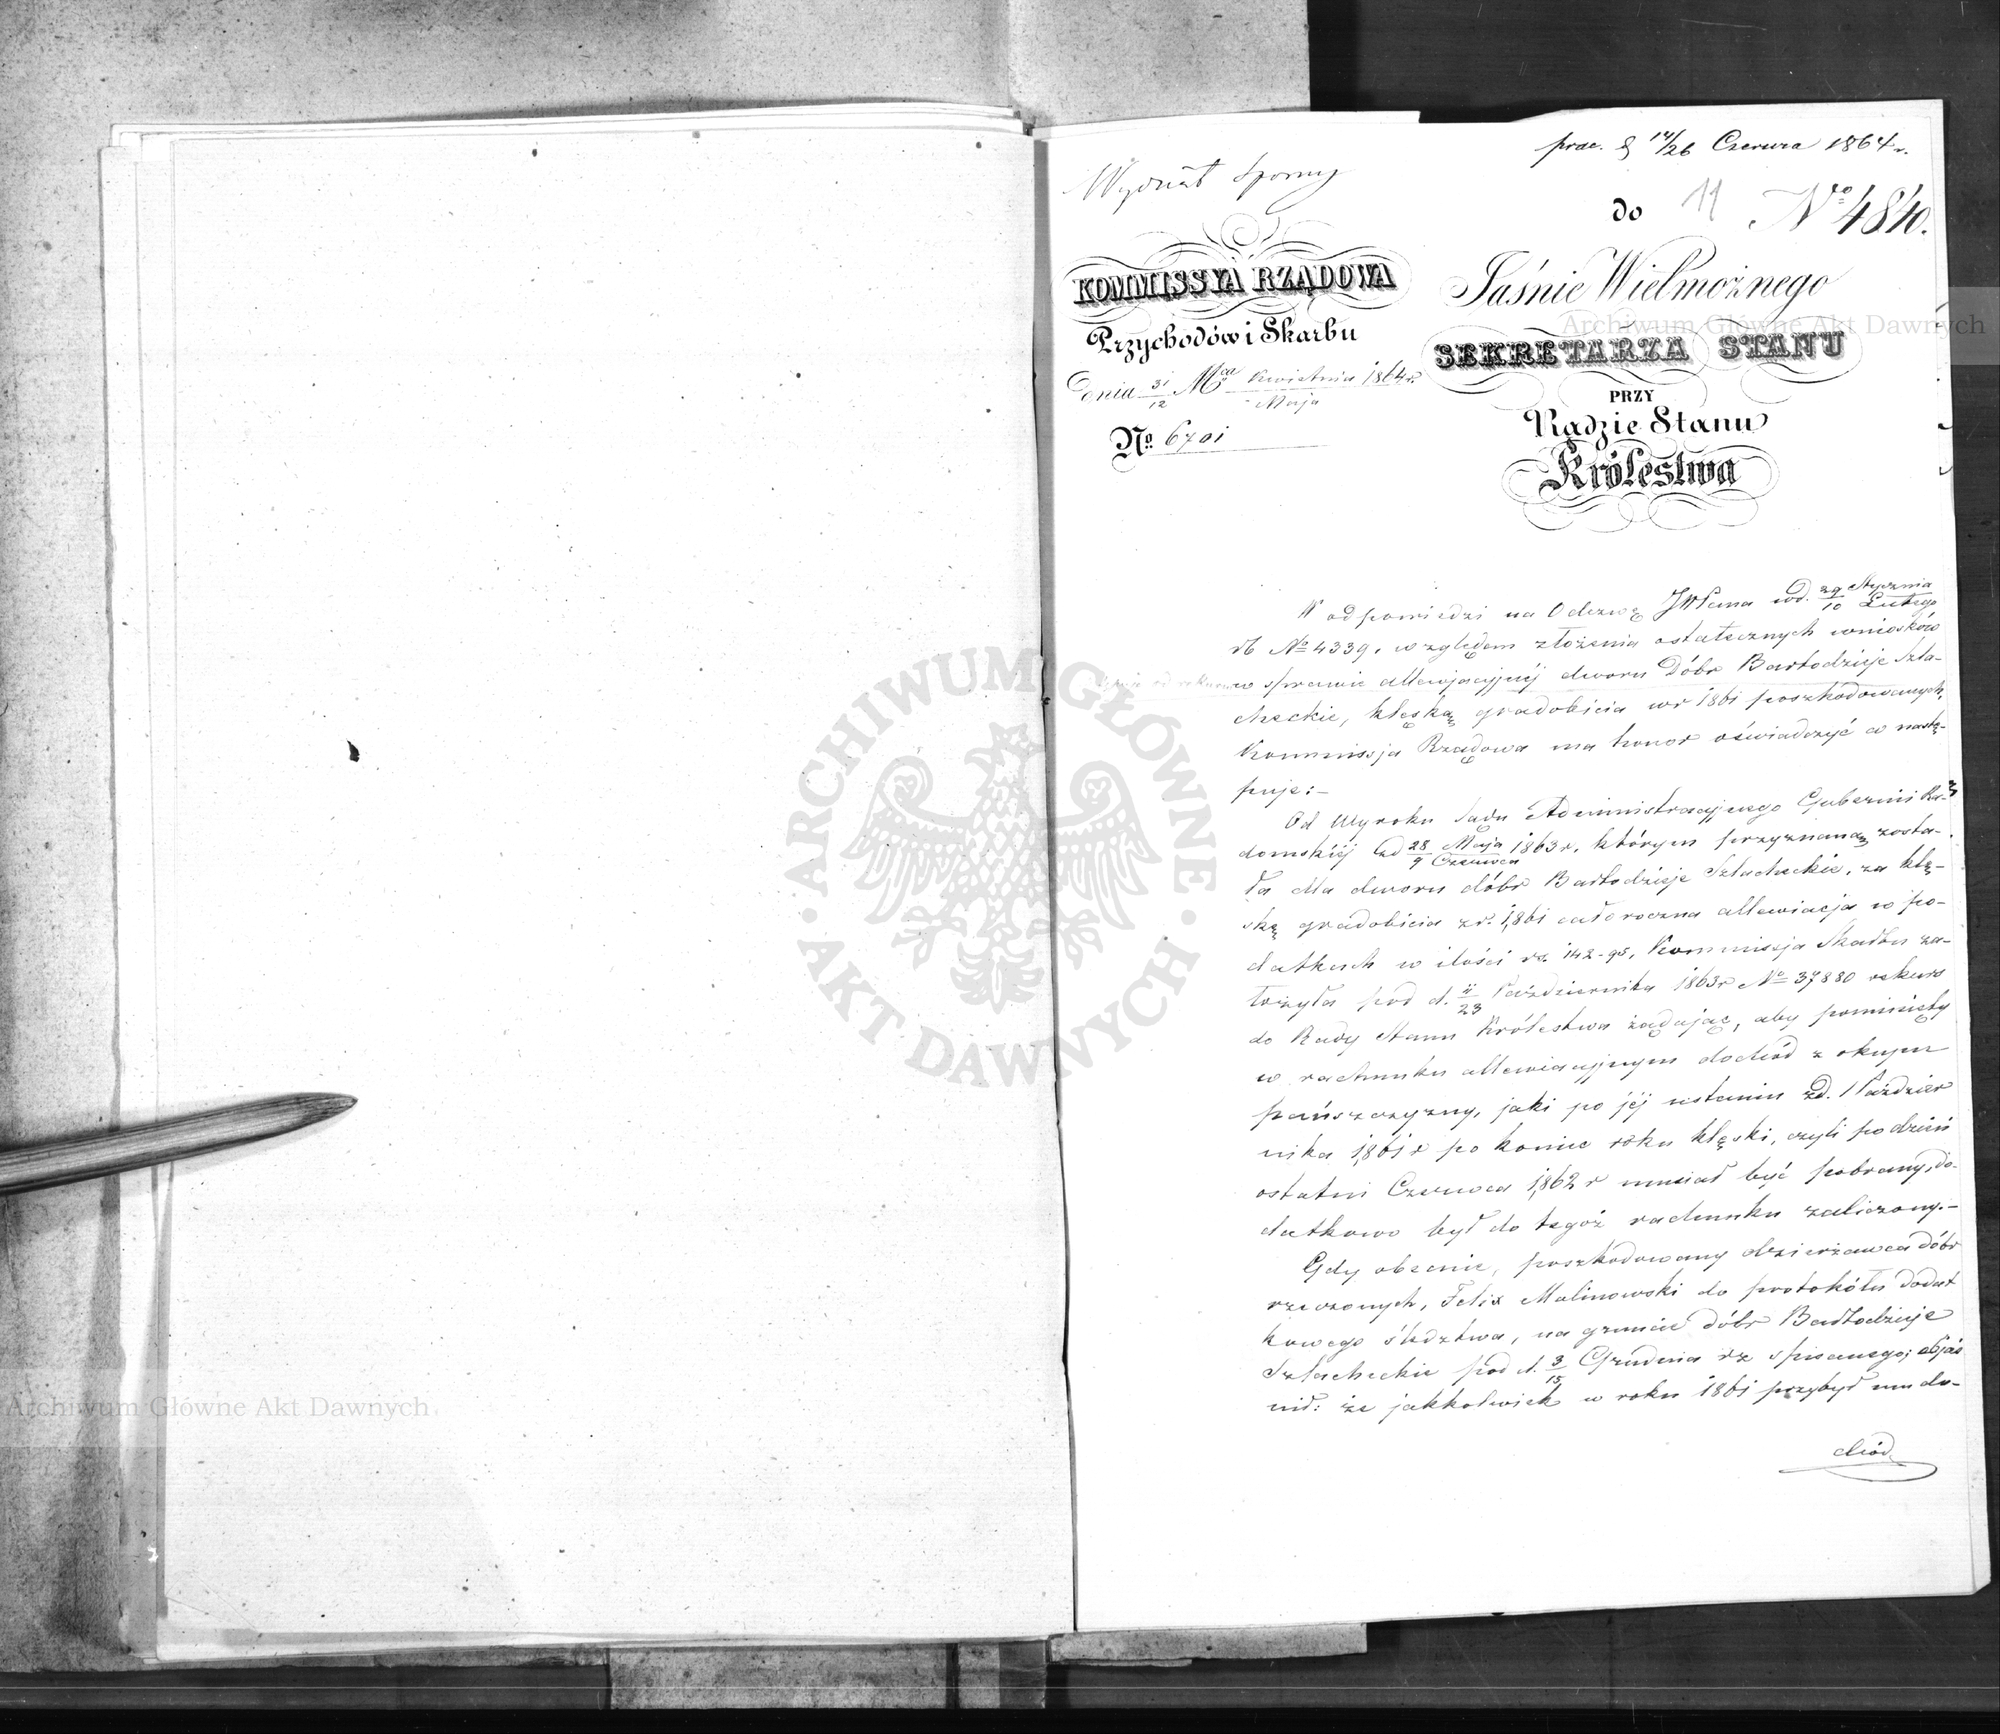 prae. d 14/26 Czerwca 1864 r.
Wydział Sporny
do 11 No 4840.
KOMMISSYA RZĄDOWA
Przychodów i Skarbu
Dnia 31/12 Mca Kwietnia/Maja 1864 r.
No 6701
Jaśnie Wielmożnego
SEKRETARZA STANU
PRZY
Radzie Stanu
Królestwa
W odpowiedzi na Odezwę JWPana z d. 29 Stycznia/10 Lutego
rb No 4339, względem złożenia ostatecznych wniosków
w sprawie allewjacyjnéj dworu Dóbr Bartodzieje Szla-
checkie, klęską gradobicia w r 1861 poszkodowanych,
Kommissja Rządowa ma honor oświadczyć co nastę-
puje:-
Od Wyroku Sądu Administracyjnego Gubernii Ra-
domskiéj z d 28 Maja/9 Czerwca 1863 r. którym przyznaną zosta-
ła dla dworu dóbr Bartodzieje Szlacheckie, za klę-
skę gradobicia z r. 1861 całoroczna allewiacja w po-
datkach w ilości rs. 142-95, Kommissja Skarbu za-
łożyła pod d. 11/23 Października 1863 r No 37880 rekurs
do Rady Stanu Królestwa żądając, aby pominięty
w rachunku allewiacyjnym dochód z okupu
pańszczyzny, jaki po jéj ustaniu z d. 1 Paździer
nika 1861 r po koniec roku klęski, czyli po dzień
ostatni Czerwca 1862 r musiał być pobrany, do-
datkowo był do tegoż rachunku zaliczony.-
Gdy obecnie, poszkodowany dzierżawca dóbr
rzeczonych, Felix Malinowski do protokółu dodat
kowego śledztwa, na gruncie dóbr Bartodzieje
Szlacheckie pod d. 3/15 Grudnia rz spisanego; objaś
nił: że jakkolwiek w roku 1861 przybył mu do-
chód
Archiwum Główne Akt Dawnych
ARCHIWUM GŁÓWNE · AKT DAWNYCH ·
Archiwum Główne Akt Dawnych